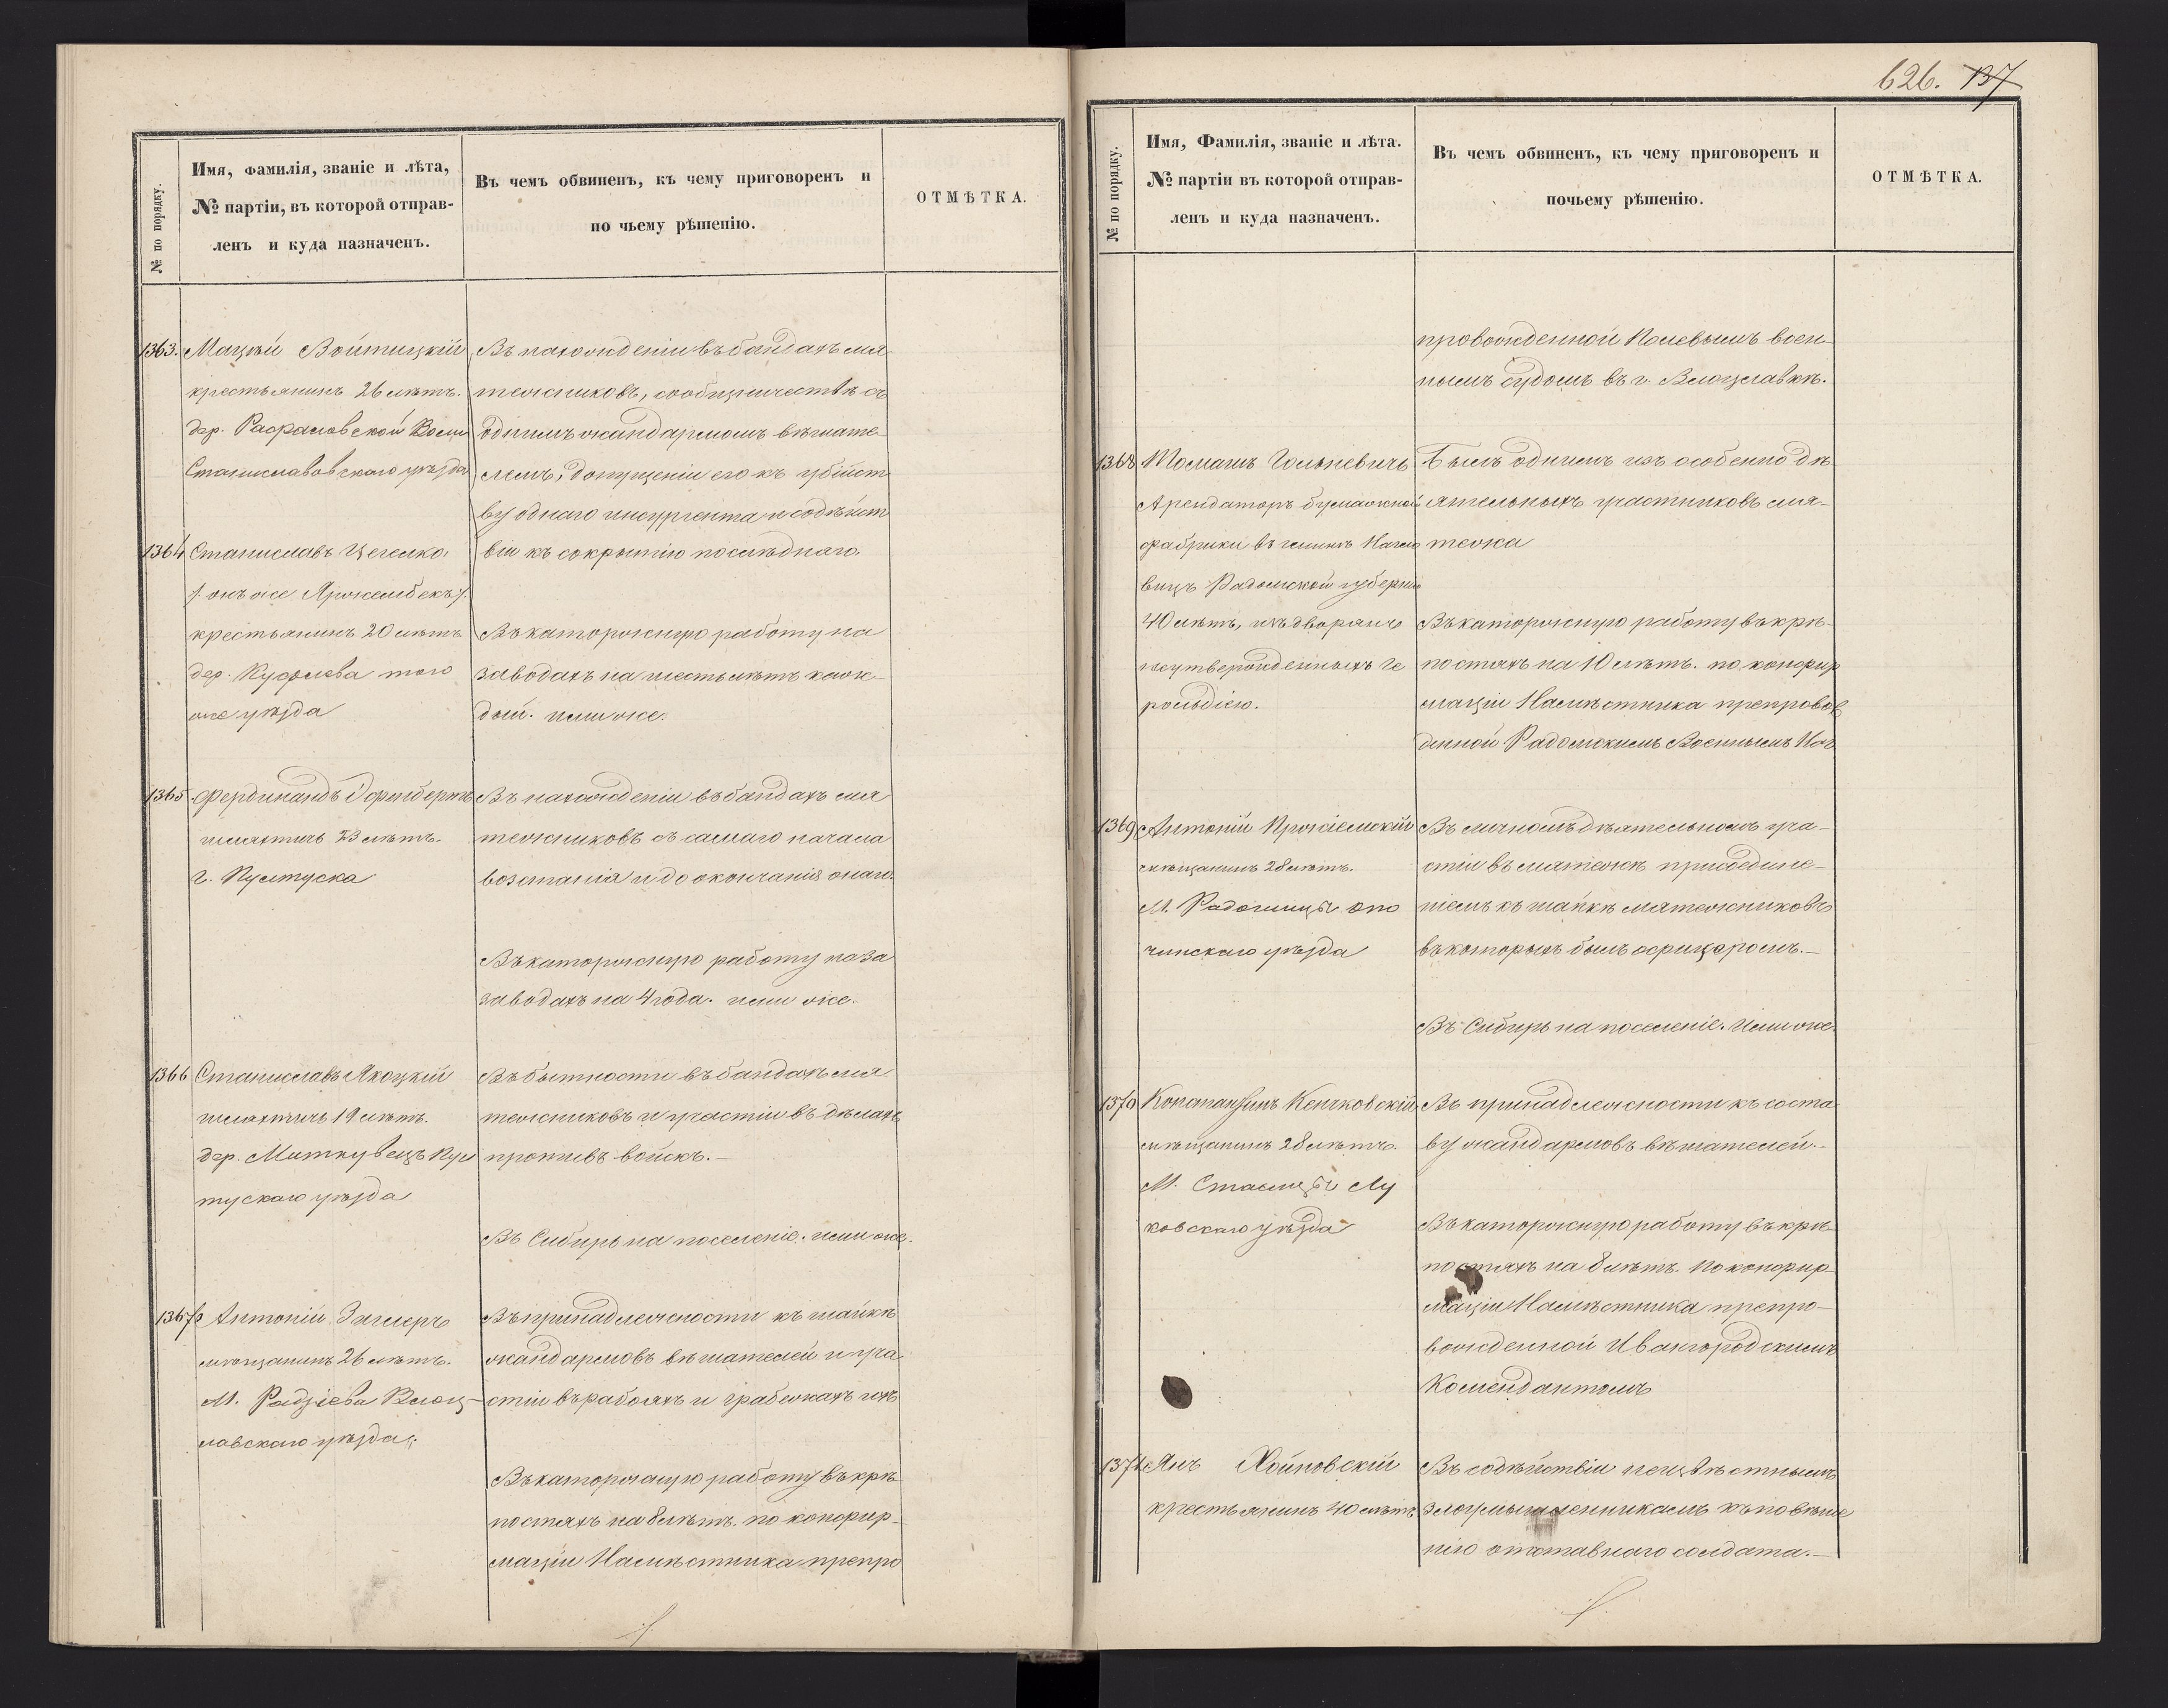 626. 137
№ по порядку.
Имя, фамилія, званіе и лѣта,
№ партіи, въ которой отправ-
ленъ и куда назначенъ.
Въ чемъ обвиненъ, къ чему приговоренъ и
по чьему рѣшенію.
ОТМѢТКА.
1363. Мацѣй Войтицкій
крестьянинъ 26 лѣтъ.
дер.
Станиславовскаго уѣзда
Въ нахожденіи въ бандахъ мя
тежниковъ, сообщничествѣ съ
однимъ жандармомъ вѣшате
лемъ, допущеніи его къ убійст
ву одного инсургента и содѣйст
віи къ сокрытію послѣдняго.
1364 Станиславъ Цегелко.
/: онъ же :/
крестьянинъ 20 лѣтъ
дер. того
же уѣзда
Въ каторжную работу на
заводахъ на шесть лѣтъ каж-
дый. имъ же.
1365 Фердинандъ
шляхтичъ 23 лѣтъ.
г. Пултуска
Въ нахожденіи въ бандахъ мя
тежниковъ съ самаго начала
возстанія и до окончанія онаго.
Въ каторжную работу на за
заводахъ на 4 года. имъ же.
1366 Станиславъ Якоцкій
шляхтичъ 19 лѣтъ.
дер. Пул
тускаго уѣзда
Въ бытности въ бандахъ мя
тежниковъ и участіи въ дѣлахъ
противъ войскъ.—
Въ Сибирь на поселеніе. имъ же.
1367 Антоній Зиглеръ
мѣщанинъ 26 лѣтъ.
М. Радзіева Влоц-
лавскаго уѣзда.
Въ принадлежности къ шайкѣ
жандармовъ вѣшателей и уча
стіи въ разбояхъ и грабежахъ ихъ
Въ каторжную работу въ крѣ
постяхъ на 8 лѣтъ. по конфир-
маціи Намѣстника препро
№ по порядку.
Имя, Фамилія, званіе и лѣта.
№ партіи въ которой отправ-
ленъ и куда назначенъ.
Въ чемъ обвиненъ, къ чему приговоренъ и
почьему рѣшенію.
ОТМѢТКА.
провожденной Полевымъ воен-
нымъ судомъ въ г. Влоцлавкѣ.
1368 Томашъ
Арендаторъ бумажной
фабрики въ гминѣ Нагло
вицъ Радомской губерніи
40 лѣтъ, изъ дворянъ
неутвержденныхъ Ге
рольдіею.
Былъ однимъ изъ особенно дѣ
ятельныхъ участниковъ мя-
тежа
Въ каторжную работу въ крѣ-
постяхъ на 10 лѣтъ. по конфир
маціи Намѣстника препровож
денной Радомскимъ Военнымъ Нач.
1369 Антоній
мѣщанинъ 28 лѣтъ.
М. Радошицы опо
чинскаго уѣзда
Въ личномъ дѣятельномъ уча-
стіи въ мятежѣ присоедине-
ніемъ къ шайкѣ мятежниковъ
въ которыхъ былъ офицеромъ.—
Въ Сибирь на поселеніе. Имъ же.
1370 Константинъ Кенчковскій
мѣщанинъ 28 лѣтъ.
М. Лу
ковскаго уѣзда
Въ принадлежности къ соста
ву жандармовъ вѣшателей.—
Въ каторжную работу въ крѣ
постяхъ на 8 лѣтъ. По конфир-
маціи Намѣстника препро-
вожденной Ивангородскимъ
Комендантомъ
1371 Янъ Хойновскій
крестьянинъ 40 лѣтъ
Въ содѣйствіи неизвѣстнымъ
злоумышленникамъ къ повѣше
нію отставнаго солдата.—